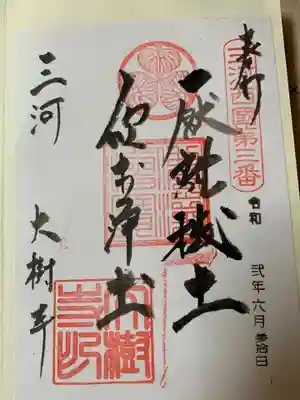 奉拝
三河西国第三番
令和
弐年六月参拾日
厭離穢土
欣求浄土
三河
大樹寺
大樹寺印